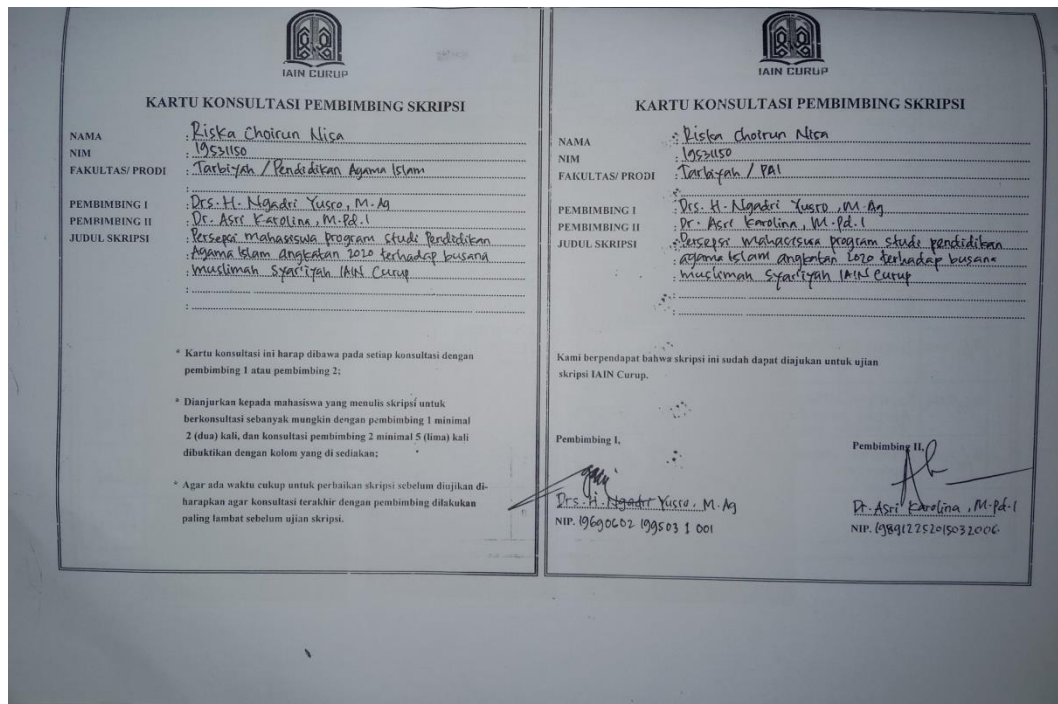 IAIN CURUP
KARTU KONSULTASI PEMBIMBING SKRIPSI
NAMA : Riska Choirun Nisa
NIM : 19531150
FAKULTAS/ PRODI : Tarbiyah / Pendidikan Agama Islam
:
PEMBIMBING I : Drs. H. Ngadri Yusro, M.Ag
PEMBIMBING II : Dr. Asri Karolina, M.Pd.I
JUDUL SKRIPSI : Persepsi mahasiswa program studi Pendidikan
: Agama Islam angkatan 2020 terhadap busana
: muslimah Syar'iyah IAIN Curup
:
:
* Kartu konsultasi ini harap dibawa pada setiap konsultasi dengan
pembimbing 1 atau pembimbing 2;
* Dianjurkan kepada mahasiswa yang menulis skripsi untuk
berkonsultasi sebanyak mungkin dengan pembimbing 1 minimal
2 (dua) kali, dan konsultasi pembimbing 2 minimal 5 (lima) kali
dibuktikan dengan kolom yang di sediakan;
* Agar ada waktu cukup untuk perbaikan skripsi sebelum diujikan di-
harapkan agar konsultasi terakhir dengan pembimbing dilakukan
paling lambat sebelum ujian skripsi.
IAIN CURUP
KARTU KONSULTASI PEMBIMBING SKRIPSI
NAMA : Riska Choirun Nisa
NIM : 19531150
FAKULTAS/ PRODI : Tarbiyah / PAI
:
PEMBIMBING I : Drs. H. Ngadri Yusro, M.Ag
PEMBIMBING II : Dr. Asri Karolina, M.Pd.I
JUDUL SKRIPSI : Persepsi mahasiswa program studi pendidikan
: agama islam angkatan 2020 terhadap busana
: muslimah Syar'iyah IAIN Curup
:
:
Kami berpendapat bahwa skripsi ini sudah dapat diajukan untuk ujian
skripsi IAIN Curup.
Pembimbing I,
Drs. H. Ngadri Yusro, M.Ag
NIP. 19690602 199503 1 001
Pembimbing II,
Dr. Asri Karolina, M.Pd.I
NIP. 198912252015032006